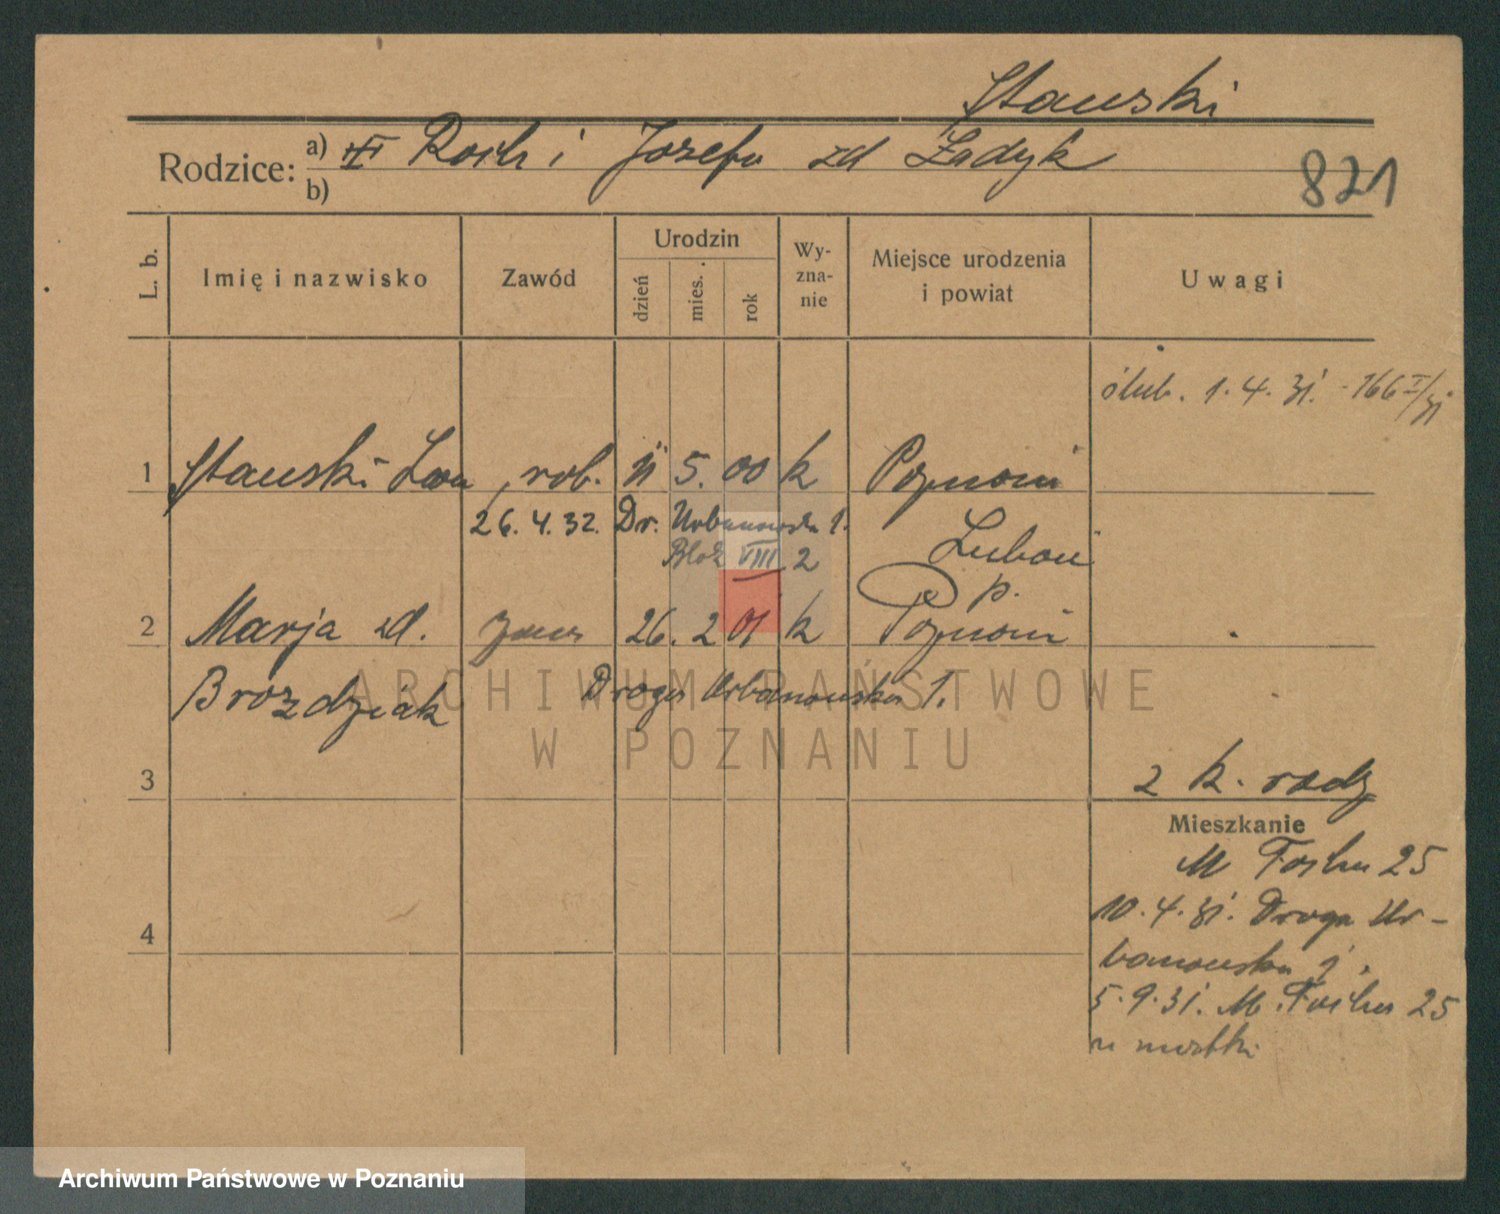 Stauski
Rodzice: a) Roch i Józefa zd Ładyk
b)
821
L. b.
Imię i nazwisko
Zawód
Urodzin
dzień
mies.
rok
Wy-
zna-
nie
Miejsce urodzenia
i powiat
Uwagi
ślub. 1.4.31. - 166 I/31
1 Stauski Leon, rob. 11 5. 00 k Poznań
26.4.32. Dr. Urbanowska 1.
Blok VIII 2
Luboń
p.
2 Marja zd. 26. 2 01 k Poznań
Brozdziak Droga Urbanowska 1.
ARCHIWUM PAŃSTWOWE
W POZNANIU
3
2 k. rodz
Mieszkanie
M Focha 25
10.4.31. Droga Ur-
banowska 1.
4
5.9.31. M. Focha 25
u matki
Archiwum Państwowe w Poznaniu